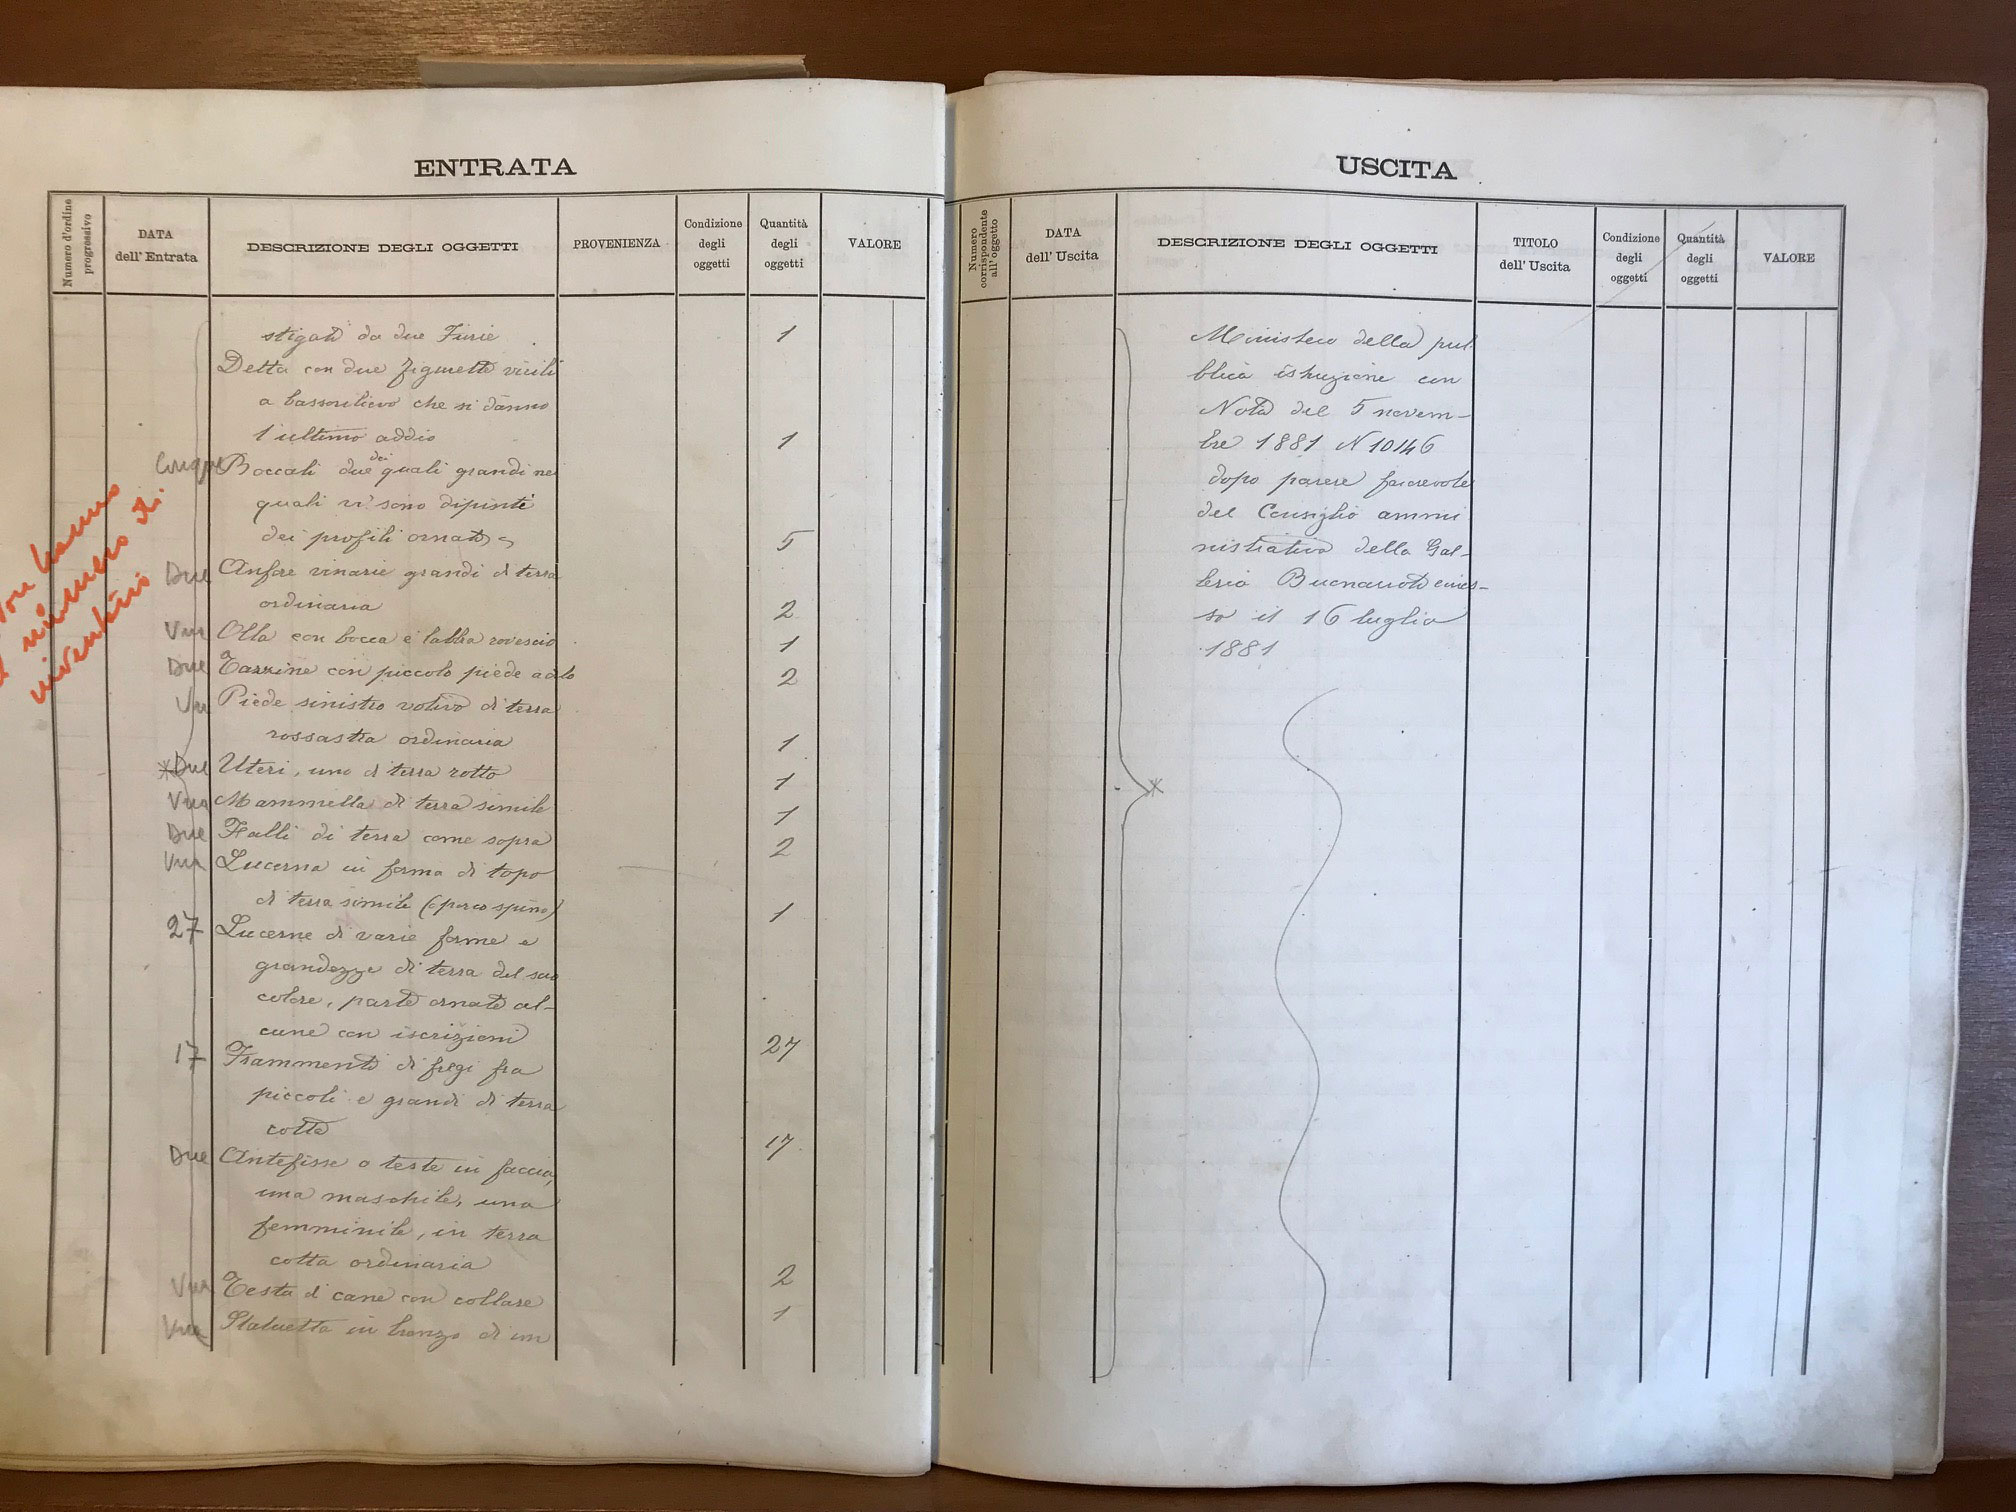 ENTRATA
Numero d'ordine
progressivo
DATA
dell' Entrata
DESCRIZIONE DEGLI OGGETTI
PROVENIENZA
Condizione
degli
oggetti
Quantità
degli
oggetti
VALORE
stigati da due Furie 1
Detta con due figurette virili
a bassorilievo che si danno
l'ultimo addio 1
Cinque Boccali due dei quali grandi nei
quali vi sono dipinte
dei profili ornati 5
Due Anfore vinarie grandi di terra
ordinaria 2
Una Olla con bocca e labbra rovescio 1
Due Tazzine con piccolo piede 2
Un Piede sinistro votivo di terra
rossastra ordinaria 1
* Due Uteri, uno di terra rotto 1
Una Mammella di terra simile 1
Due Falli di terra come sopra 2
Una Lucerna in forma di topo
di terra simile (o porco spino) 1
27 Lucerne di varie forme e
grandezze di terra del suo
colore, parte ornate al-
cune con iscrizioni 27
17 Frammenti di fregi fra
piccoli e grandi di terra
cotta 17
Due Antefisse o teste in faccia,
una maschile, una
femminile, in terra
cotta ordinaria 2
Una Testa di cane con collare 1
Una Statuetta in bronzo di un
non hanno
numero di
inventario
USCITA
Numero
corrispondente
all' oggetto
DATA
dell' Uscita
DESCRIZIONE DEGLI OGGETTI
TITOLO
dell' Uscita
Condizione
degli
oggetti
Quantità
degli
oggetti
VALORE
Ministero della pub
blica istruzione con
Nota del 5 novem-
bre 1881 N 10146
dopo parere favorevole
del Consiglio ammi
nistrativo della Gal-
leria Buonarroti emes-
so il 16 luglio
1881
*